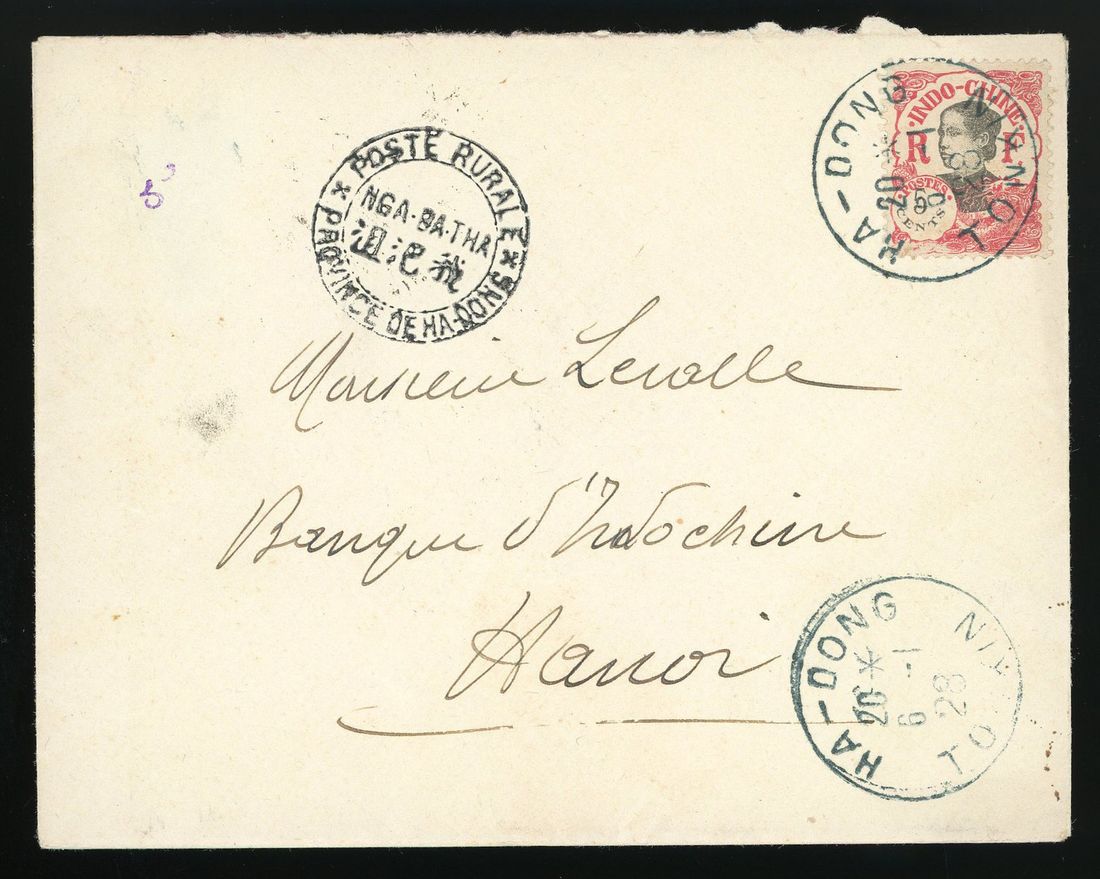 POSTE RURALE
NGA-BA-THA
PROVINCE DE HA-DONG
INDO-CHINE
R F
POSTES
5
CENTS
HA-DONG TONKIN
20 *
Monsieur
Banque d'Indochine
Hanoi
HA-DONG TONKIN
20 *
6 -1
28